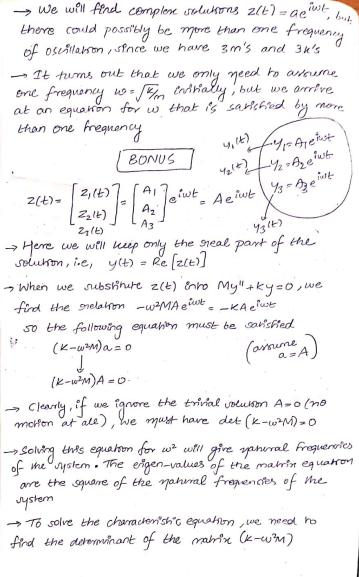 → We will find complex solutions z(t) = ae^{iωt}, but
there could possibly be more than one frequency
of oscillation, since we have 3m's and 3k's
→ It turns out that we only need to assume
one frequency ω = √(k/m) initially, but we arrive
at an equation for ω that is satisfied by more
than one frequency
BONUS
y₁(t) y₁ = A₁e^{iωt}
y₂(t) y₂ = A₂e^{iωt}
y₃(t) y₃ = A₃e^{iωt}
z(t) = [z₁(t) z₂(t) z₃(t)] = [A₁ A₂ A₃] e^{iωt} = Ae^{iωt}
→ Here we will keep only the real part of the
solution, i.e, y(t) = Re[z(t)]
→ When we substitute z(t) into My'' + ky = 0, we
find the relation -ω²MAe^{iωt} = -KAe^{iωt}
so the following equation must be satisfied
(K-ω²M)a = 0 (assume a = A)
↓
(K-ω²M)A = 0
→ Clearly, if we ignore the trivial solution A = 0 (no
motion at all), we must have det(K-ω²M) = 0
→ Solving this equation for ω² will give natural frequencies
of the system. The eigen-values of the matrix equation
are the square of the natural frequencies of the
system
→ To solve the characteristic equation, we need to
find the determinant of the matrix (K-ω²M)